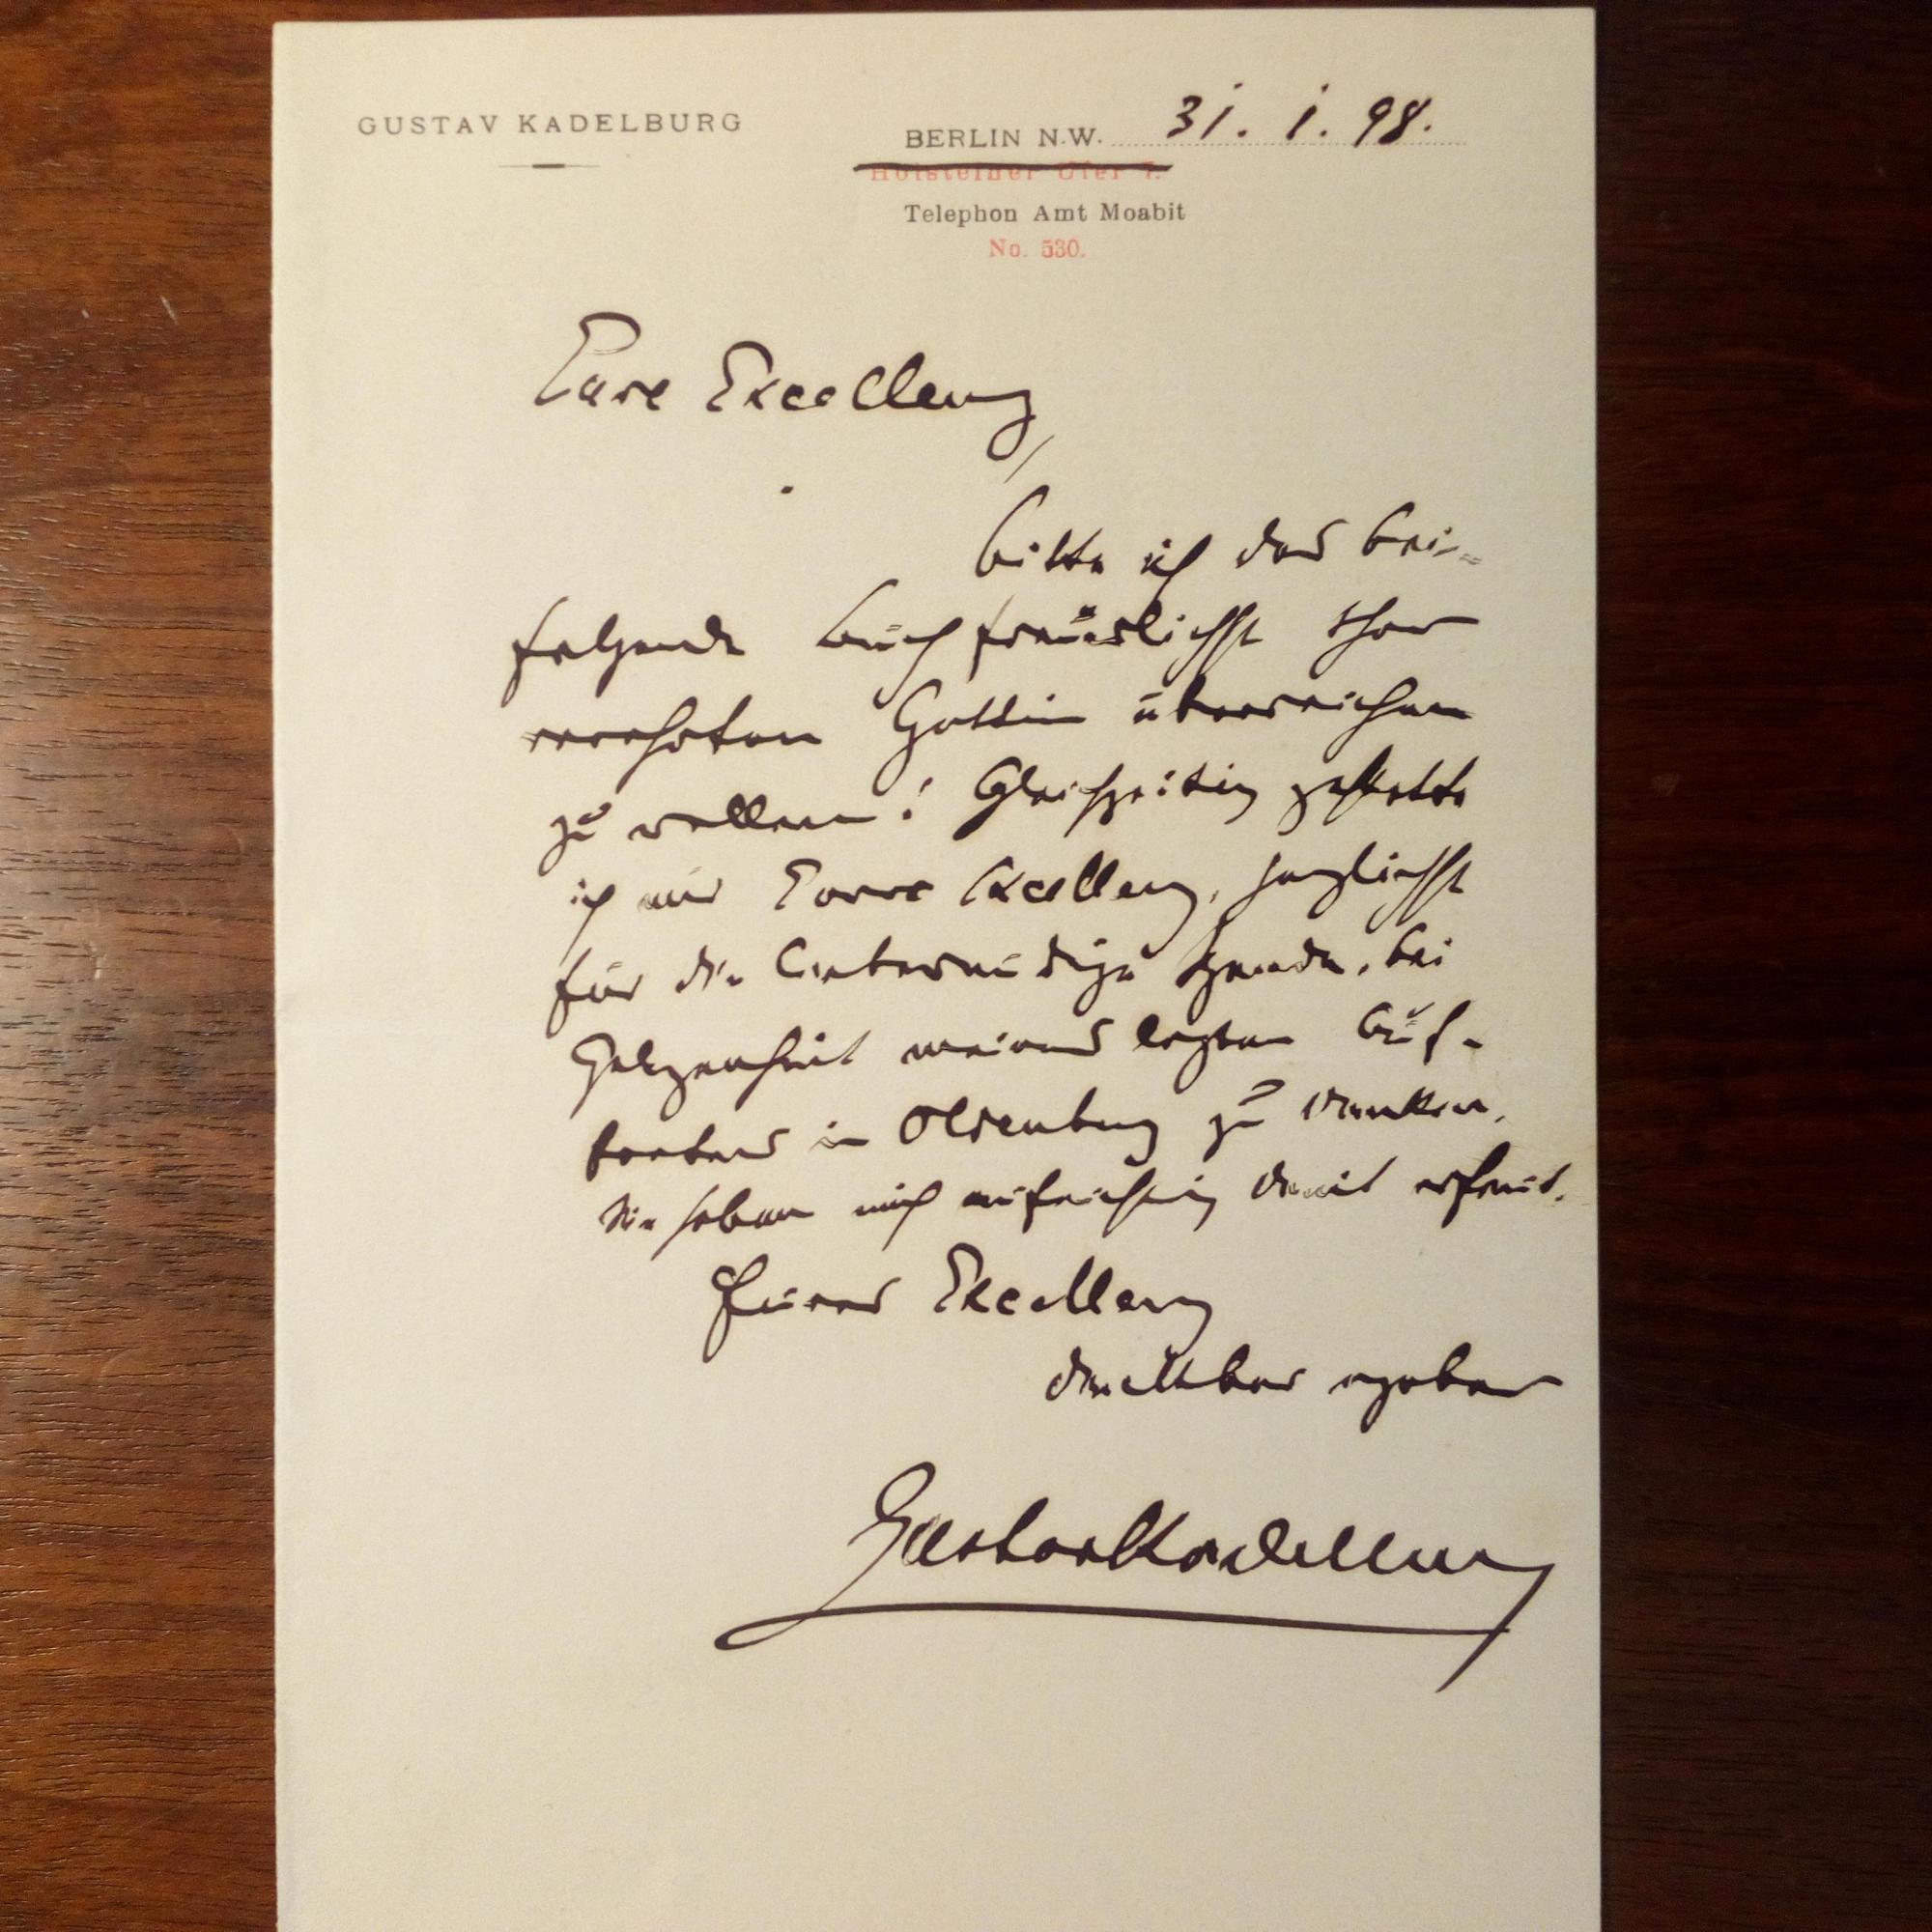 GUSTAV KADELBURG
BERLIN N.W. 31. 1. 98.
Holsteiner Ufer 7.
Telephon Amt Moabit
No. 530.
Eure Excellenz,
bitte ich das bei-
folgende Buch freundlichst Ihrer
verehrten Gattin überreichen
zu wollen! Gleichzeitig gestatte
ich mir Eurer Excellenz, herzlichst
für die liebenswürdige Spende, bei
Gelegenheit meines letzten Auf-
tretens in Oldenburg zu danken.
Sie haben mich aufrichtig damit erfreut.
Eurer Excellenz
dankbar ergebener
Gustav Kadelburg